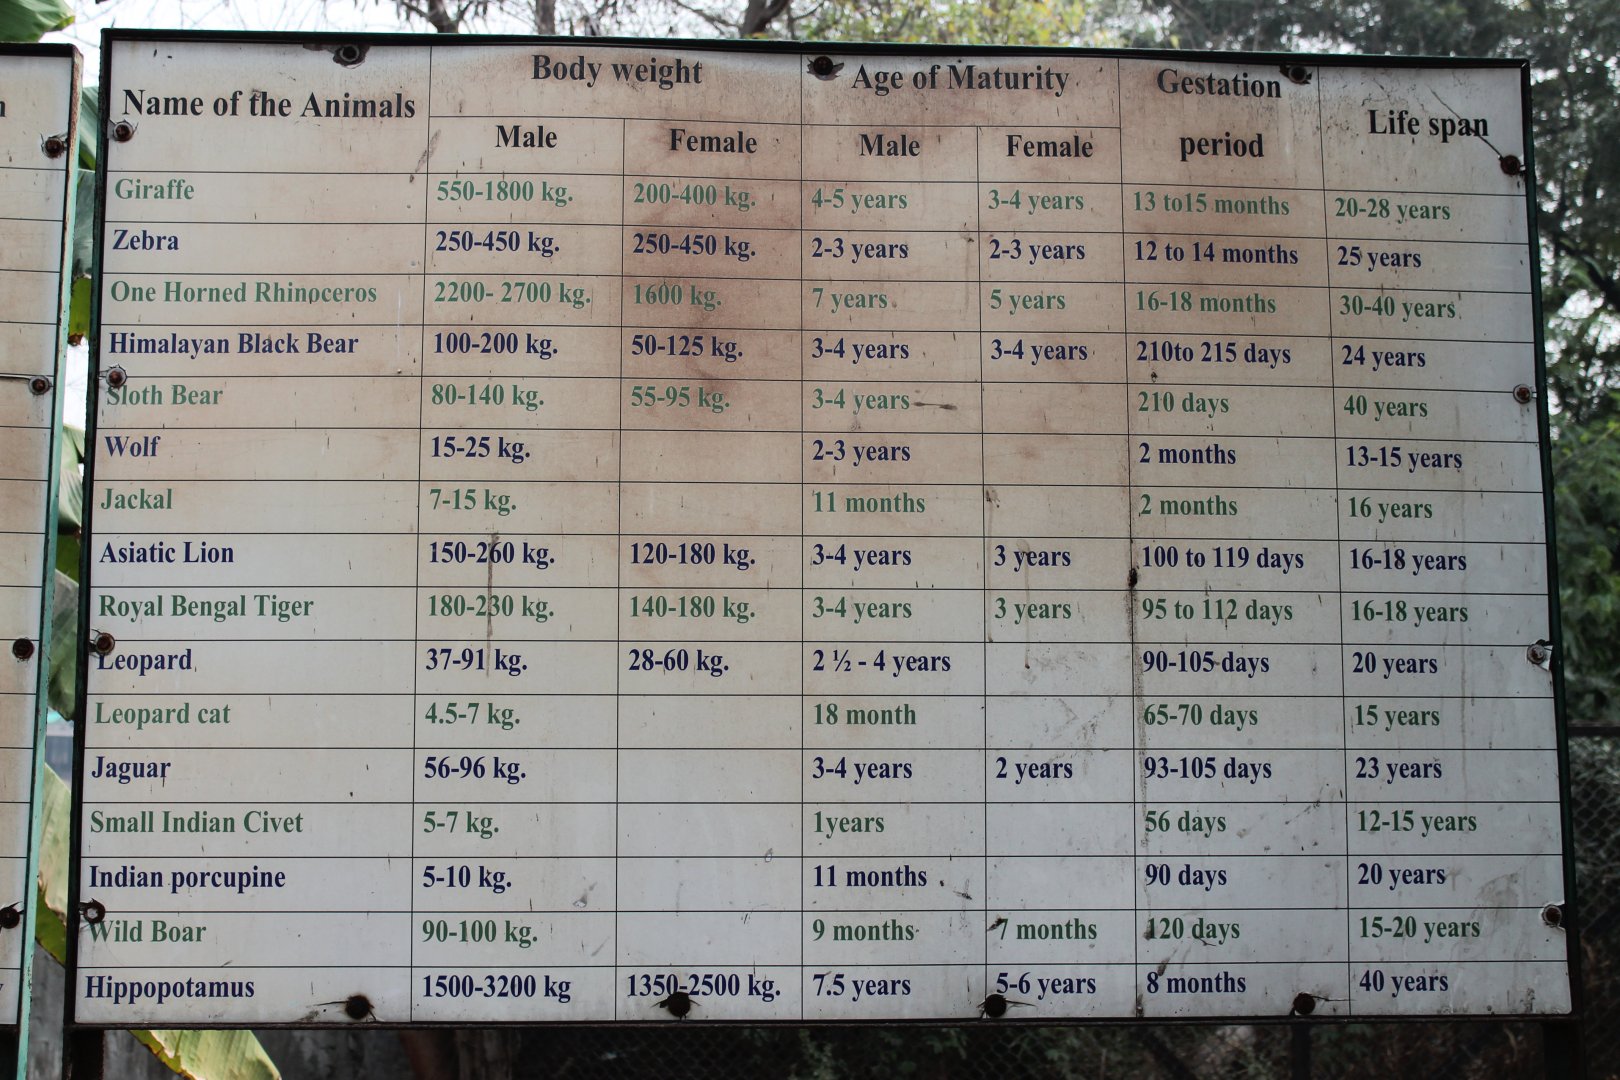 Name of the Animals Body weight Age of Maturity Gestation period Life span
Male Female Male Female
Giraffe 550-1800 kg. 200-400 kg. 4-5 years 3-4 years 13 to15 months 20-28 years
Zebra 250-450 kg. 250-450 kg. 2-3 years 2-3 years 12 to 14 months 25 years
One Horned Rhinoceros 2200- 2700 kg. 1600 kg. 7 years 5 years 16-18 months 30-40 years
Himalayan Black Bear 100-200 kg. 50-125 kg. 3-4 years 3-4 years 210to 215 days 24 years
Sloth Bear 80-140 kg. 55-95 kg. 3-4 years 210 days 40 years
Wolf 15-25 kg. 2-3 years 2 months 13-15 years
Jackal 7-15 kg. 11 months 2 months 16 years
Asiatic Lion 150-260 kg. 120-180 kg. 3-4 years 3 years 100 to 119 days 16-18 years
Royal Bengal Tiger 180-230 kg. 140-180 kg. 3-4 years 3 years 95 to 112 days 16-18 years
Leopard 37-91 kg. 28-60 kg. 2 ½ - 4 years 90-105 days 20 years
Leopard cat 4.5-7 kg. 18 month 65-70 days 15 years
Jaguar 56-96 kg. 3-4 years 2 years 93-105 days 23 years
Small Indian Civet 5-7 kg. 1years 56 days 12-15 years
Indian porcupine 5-10 kg. 11 months 90 days 20 years
Wild Boar 90-100 kg. 9 months 7 months 120 days 15-20 years
Hippopotamus 1500-3200 kg 1350-2500 kg. 7.5 years 5-6 years 8 months 40 years